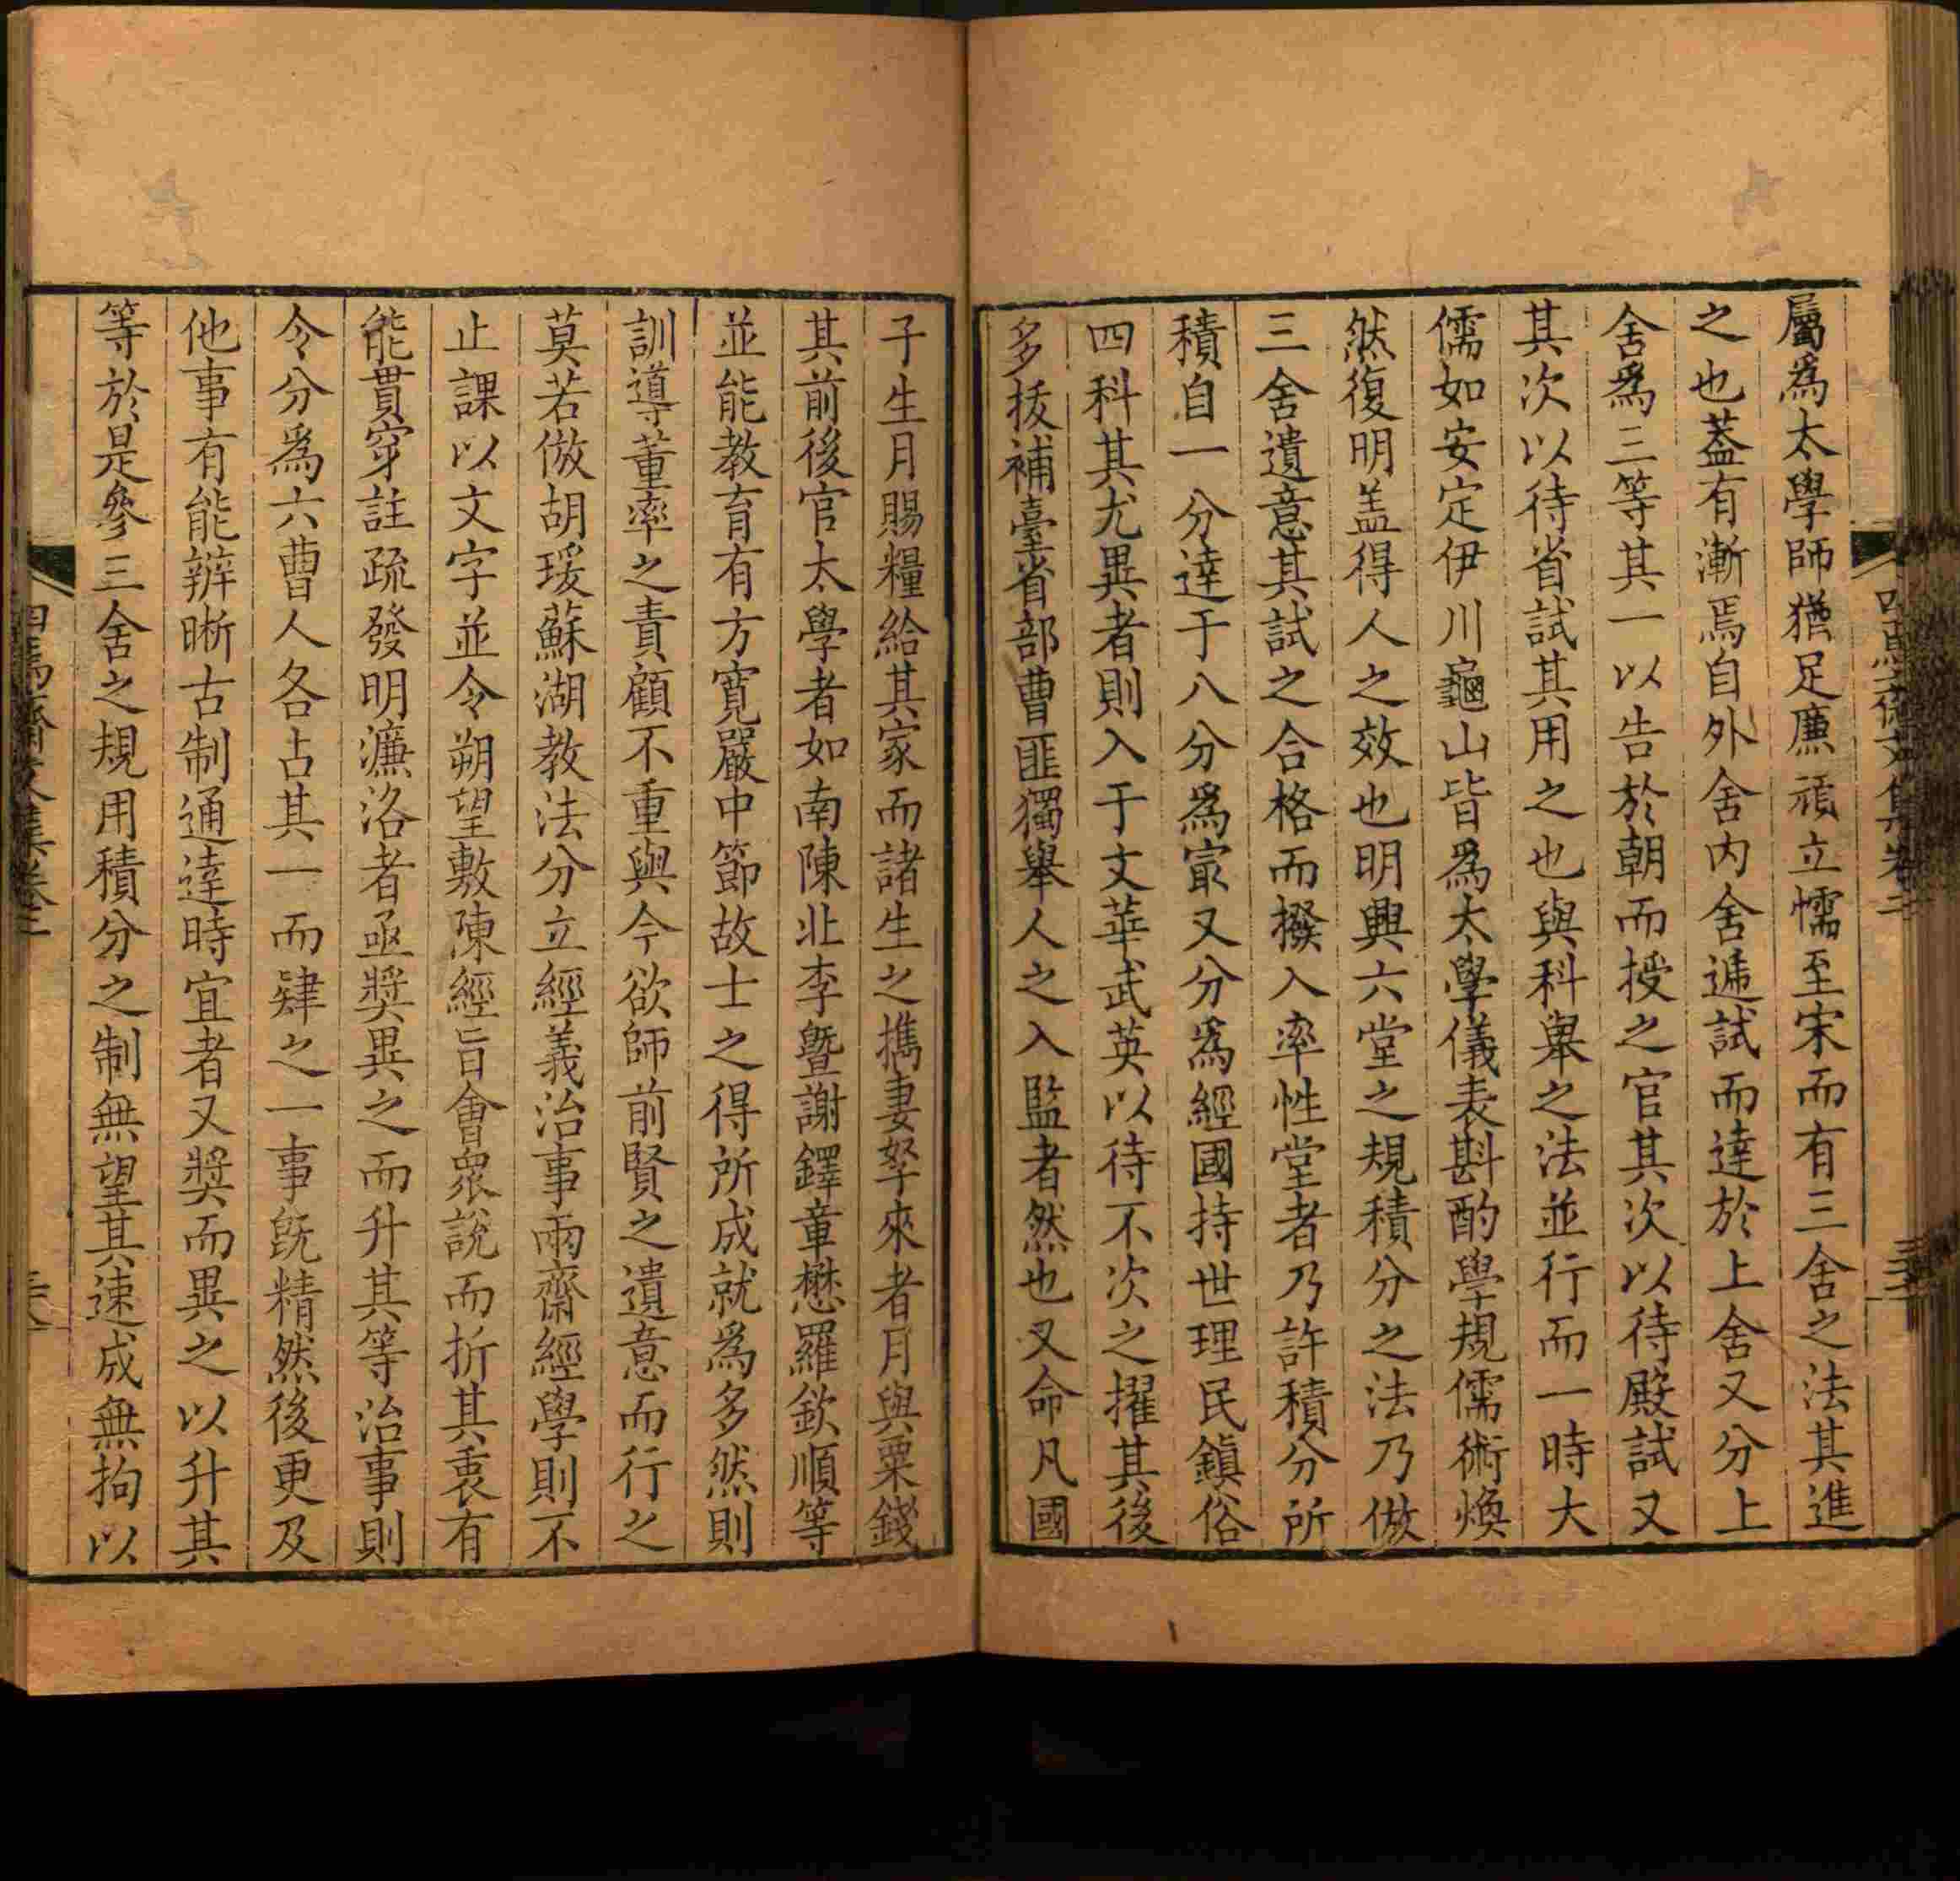 屬爲太學師猶足廉頑立懦至宋而有三舍之法其進
之也葢有漸焉自外舍内舍遞試而達於上舍又分上
舍爲三等其一以告於朝而授之官其次以待殿試又
其次以待省試其用之也與科舉之法並行而一時大
儒如安定伊川龜山皆爲太學儀表斟酌學規儒術煥
然復明盖得人之效也明興六堂之規積分之法乃倣
三舍遺意其試之合格而撥入率性堂者乃許積分所
積自一分達于八分爲最又分爲經國持世理民鎮俗
四科其尤異者則入于文華武英以待不次之擢其後
多拔補臺省部曹匪獨舉人之入監者然也又命凡國
子生月賜糧給其家而諸生之攜妻孥來者月與粟錢
其前後官太學者如南陳北李曁謝鐸章懋羅欽順等
並能教育有方寬嚴中節故士之得所成就爲多然則
訓導董率之責顧不重與今欲師前賢之遺意而行之
莫若倣胡瑗蘇湖教法分立經義治事兩齋經學則不
止課以文字並令朔望敷陳經旨會衆說而折其衷有
能貫穿註疏發明濂洛者亟奬異之而升其等治事則
令分爲六曹人各占其一而肄之一事旣精然後更及
他事有能辦晰古制通達時宜者又奬而異之以升其
等於是參三舍之規用積分之制無望其速成無拘以